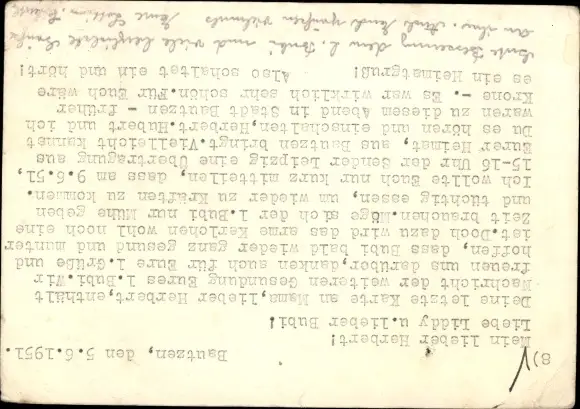 8)
Bautzen, den 5.6.1951.
Mein lieber Herbert!
Liebe Liddy u.lieber Bubi!
Deine letzte Karte an Mama,lieber Herbert,enthält
Nachricht der weiteren Gesundung Eures l.Bubi.Wir
freuen uns darüber,danken auch für Eure l.Grüße und
hoffen, dass Bubi bald wieder ganz gesund und munter
ist.Doch dazu wird das arme Kerlchen wohl noch eine
Zeit brauchen.Möge sich der l.Bubi nur Mühe geben
und tüchtig essen, um wieder zu Kräften zu kommen.
Ich wollte Euch nur kurz mitteilen, dass am 9.6.51,
15-16 Uhr der Sender Leipzig eine Übertragung aus
Eurer Heimat, aus Bautzen bringt.Vielleicht kannst
Du es hören und einschalten,Herbert.Hubert und ich
waren zu diesem Abend in Stadt Bautzen - früher
Krone -. Es war wirklich sehr schön.Für Euch wäre
es ein Heimatgruß! Also schaltet ein und hört!
Gute Besserung dem l. Bubi und viele herzliche Grüße